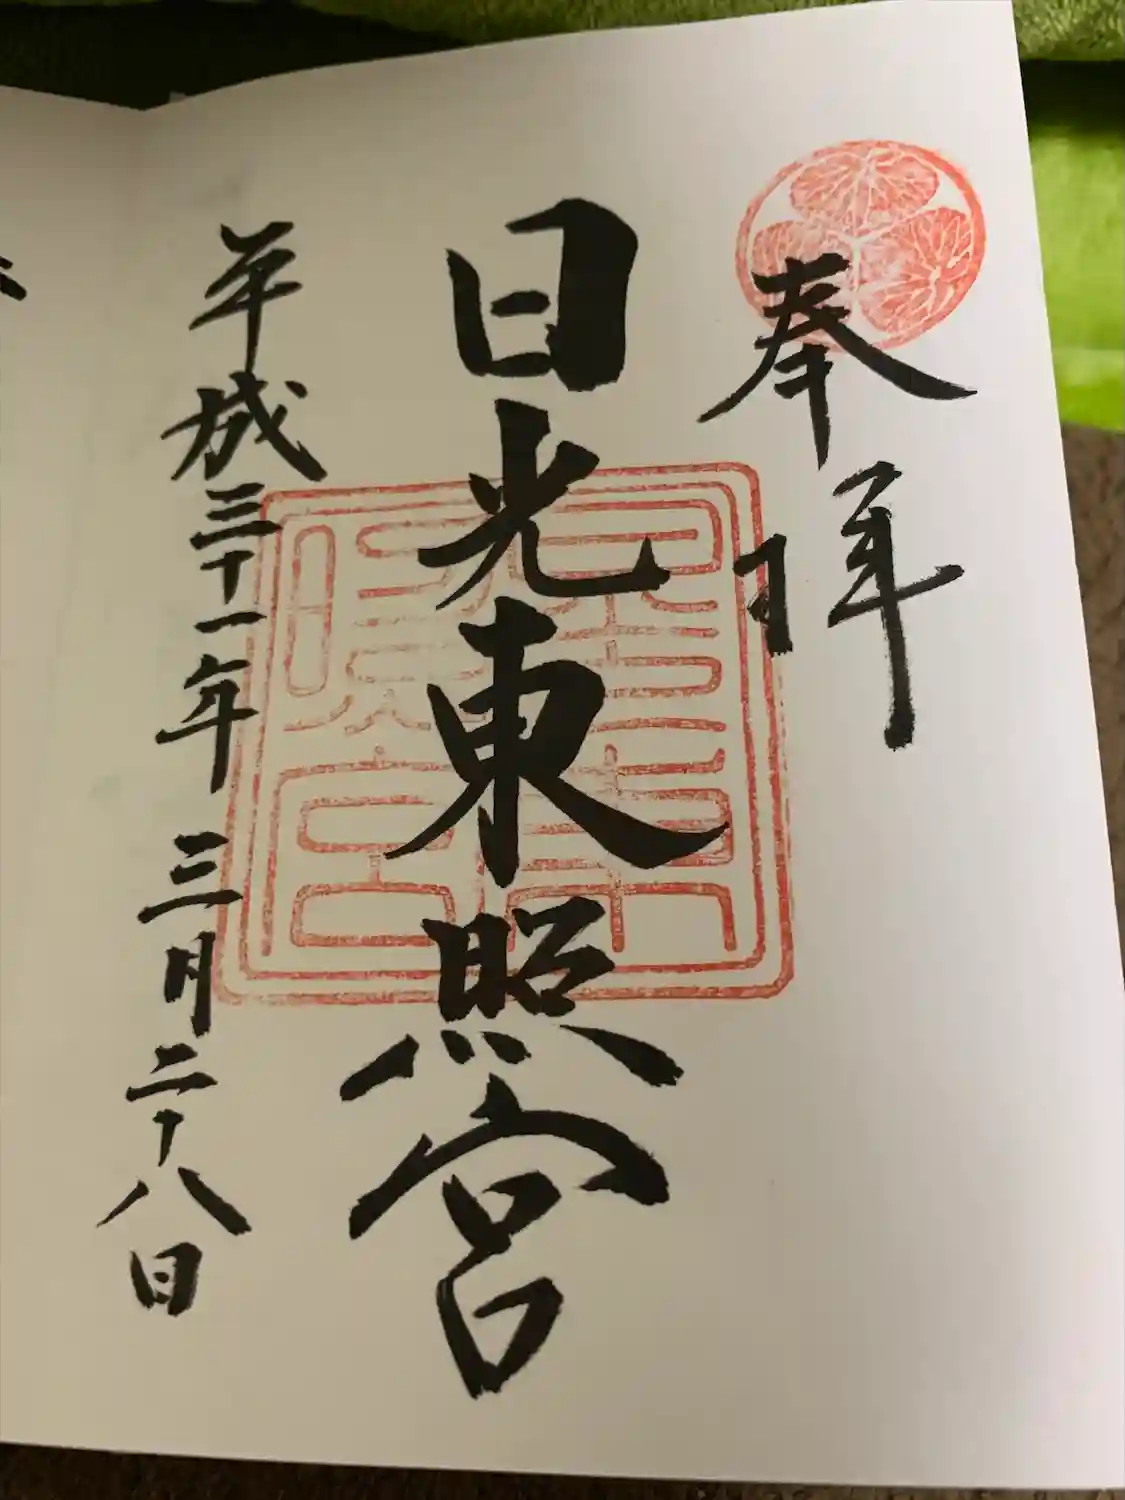 奉拝
日光東照宮
平成三十一年 三月二十八日